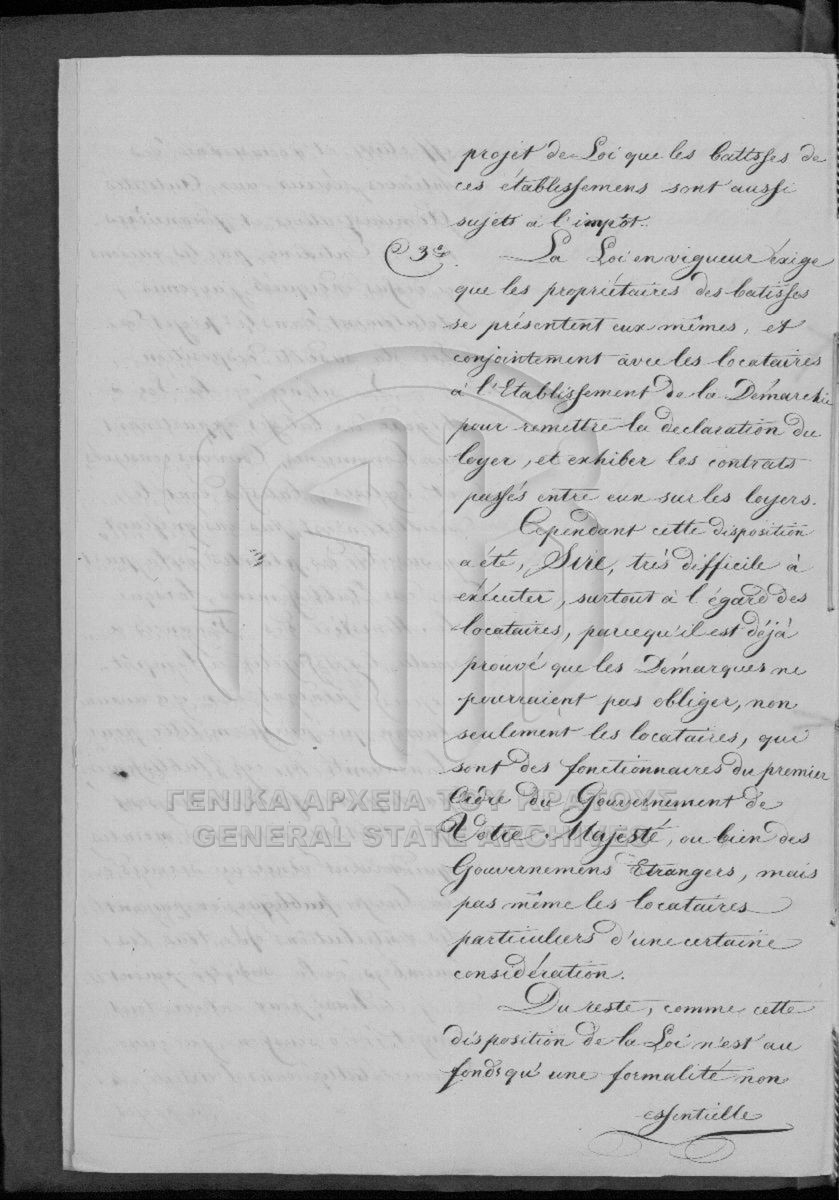 projet de Loi que les batisses de
ces établissemens sont aussi
sujets à l'impôt.
3e.
La Loi en vigueur éxige
que les propriétaires des batisses
se présentent eux mêmes, et
conjointement avec les locataires
à l'Etablissement de la Démarchie
pour remettre la declaration du
loyer, et exhiber les contrats
passés entre eux sur les loyers.
Cependant cette disposition
a été, Sire, très difficile à
éxécuter, surtout à l'égard des
locataires, parcequ'il est déjà
prouvé que les Démarques ne
pourraient pas obliger, non
seulement les locataires, qui
sont des fonctionnaires du premier
Ordre du Gouvernement de
Votre Majesté, ou bien des
Gouvernemens Etrangers, mais
pas même les locataires
particuliers d'une certaine
considération.
Du reste, comme cette
disposition de la Loi n'est au
fonds qu'une formalité non
essentielle
ΓΕΝΙΚΑ ΑΡΧΕΙΑ ΤΟΥ ΚΡΑΤΟΥΣ
GENERAL STATE ARCHIVES